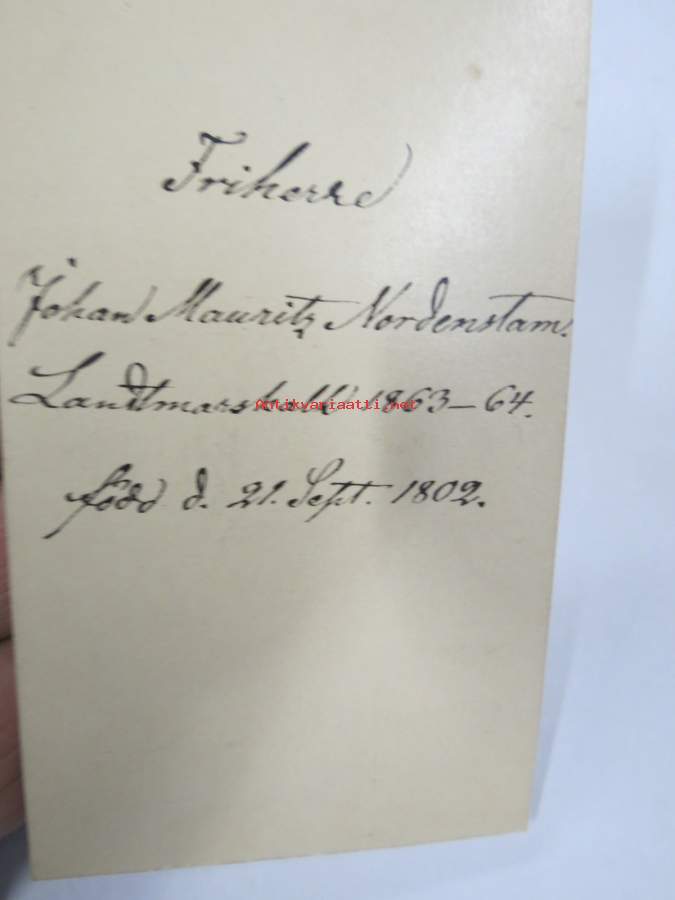 Friherre
Johan Mauritz Nordenstam.
Landtmarskalk 1863–64.
född d. 21. Sept. 1802.
Antikvariaatti.net